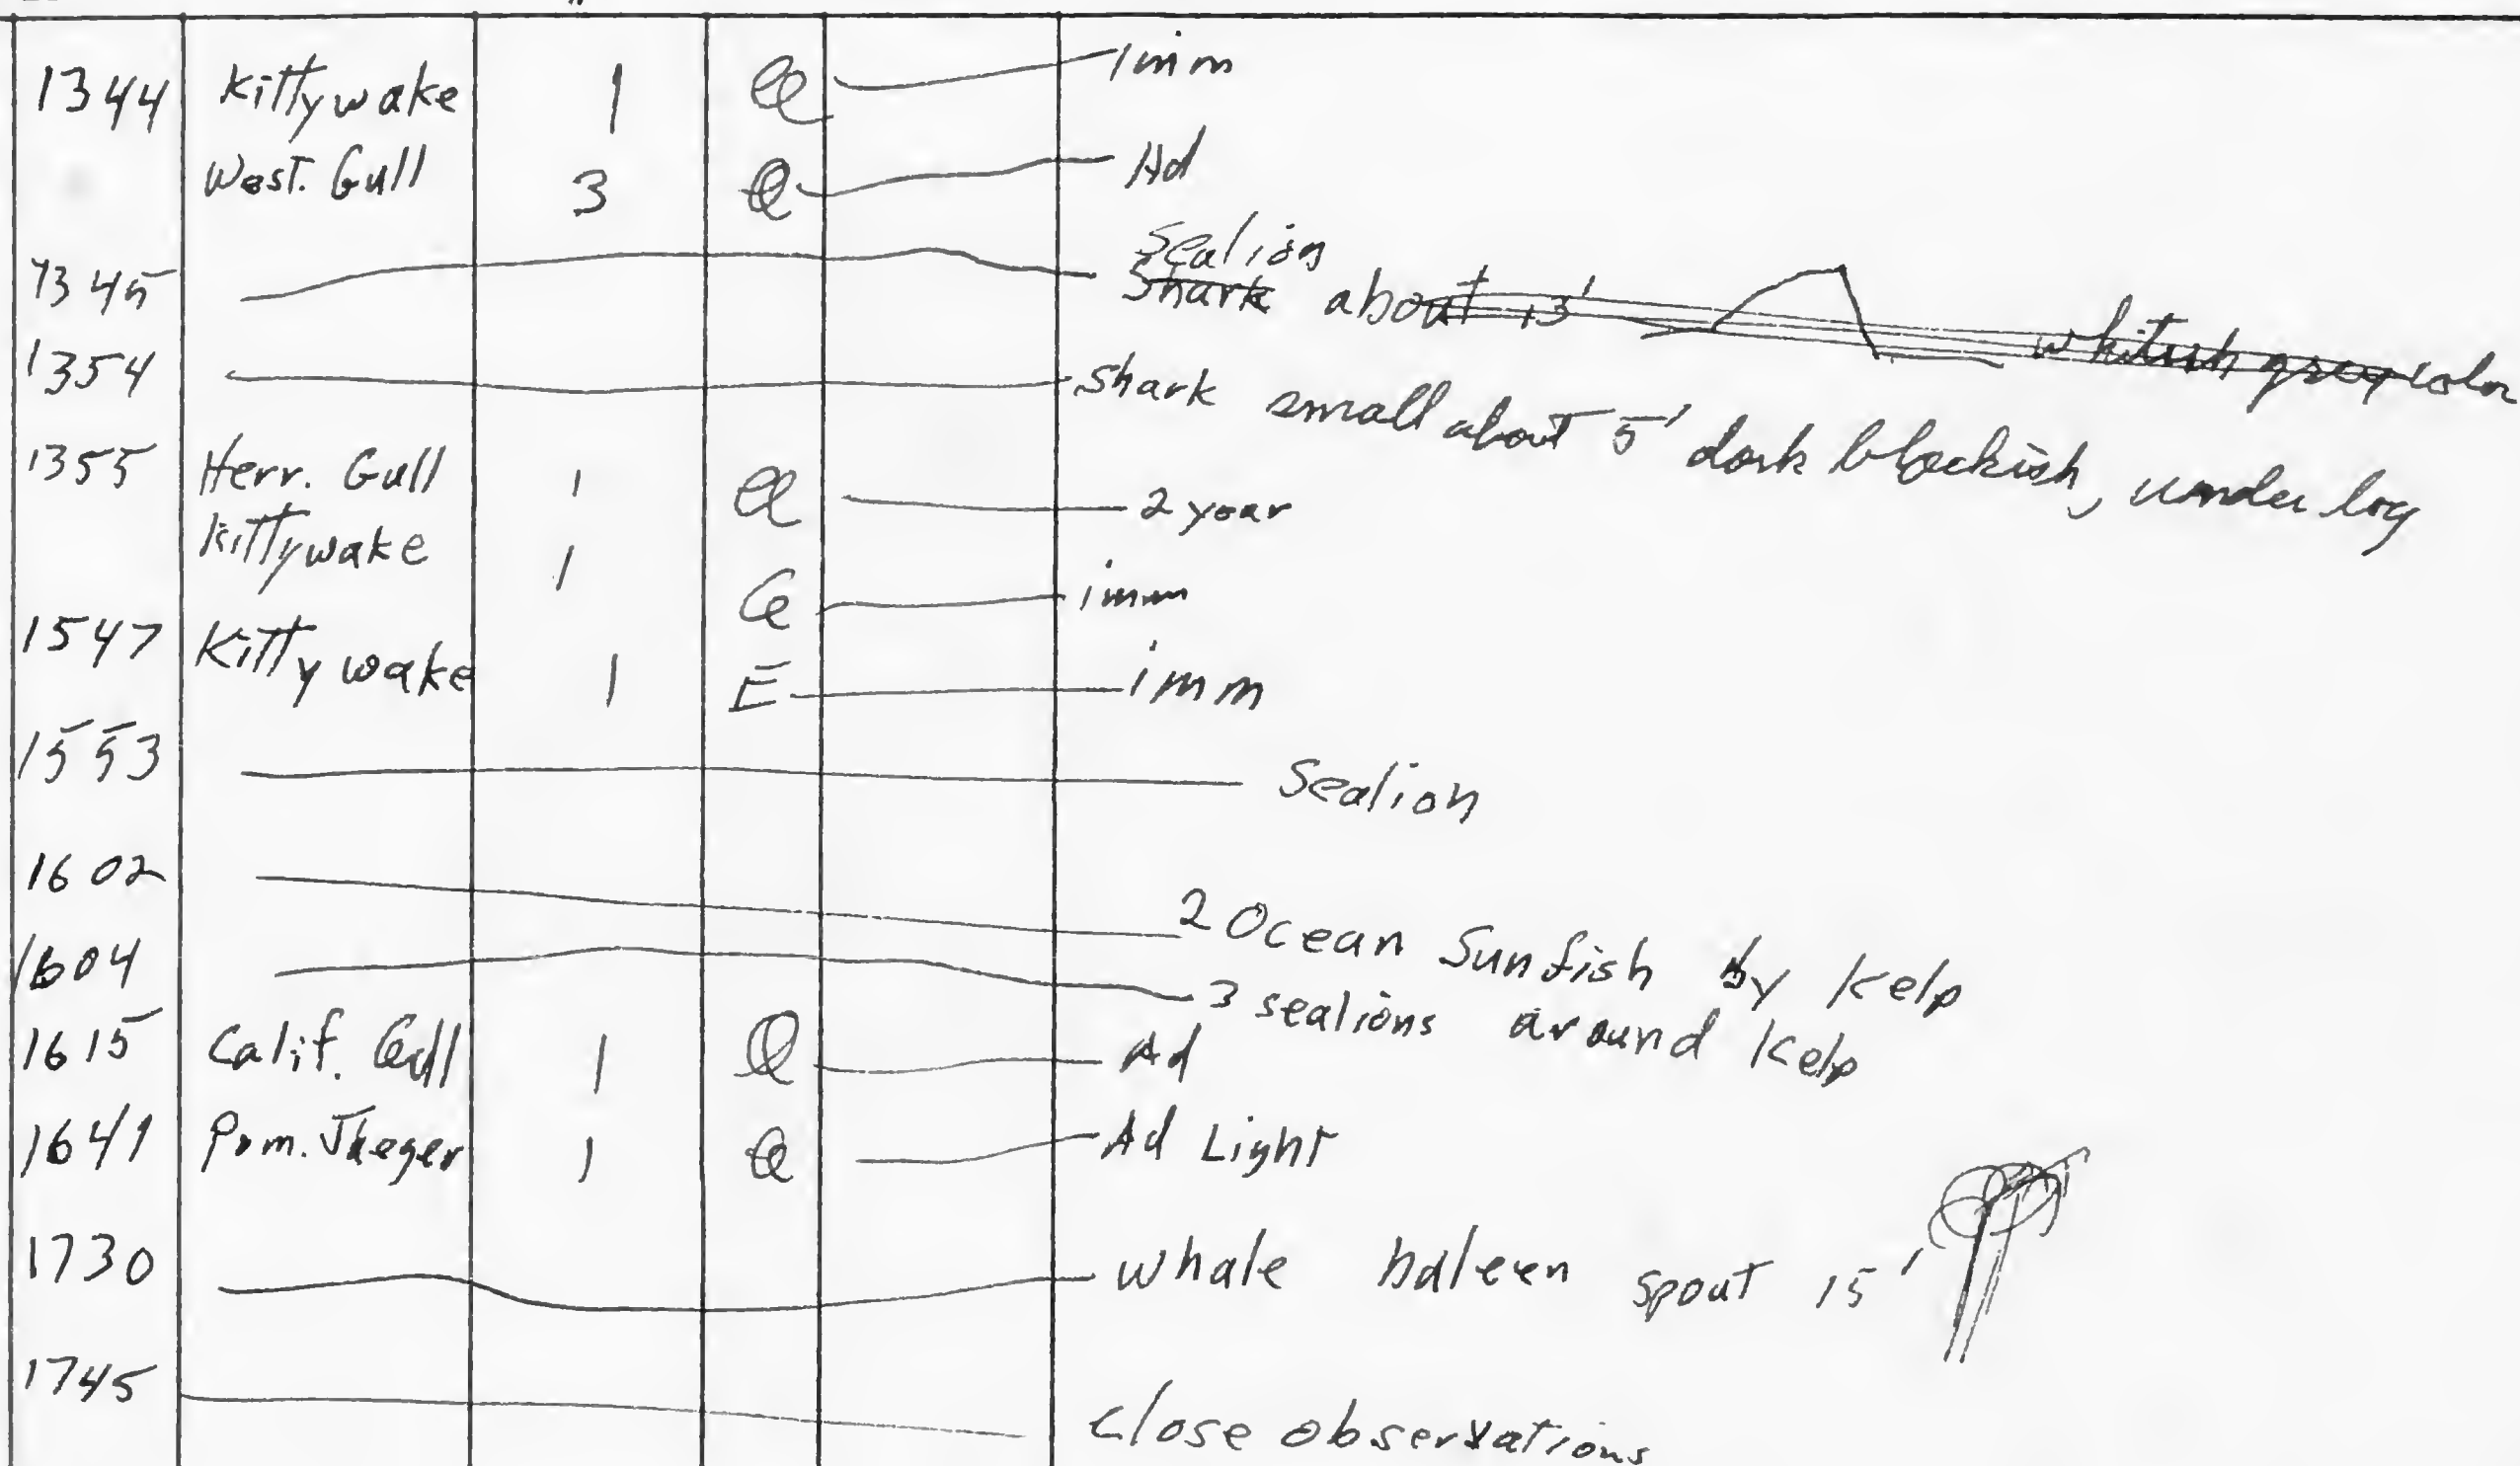 1344 Kittywake 1 imm
West. Gull 3 Ad
1345 Sealion Shark about 13' whitish grey color
1354 Shark small about 5' dark blackish, under log
1355 Herr. Gull 1 2 year
Kittywake 1 imm
1547 Kittywake 1 E imm
1553 Sealion
1602 2 Ocean Sunfish by Kelp
1604 3 sealions around Kelp
1615 Calif. Gull 1 Ad
1641 Pom. Jaeger 1 Ad Light
1730 whale baleen spout 15'
1745 close observations